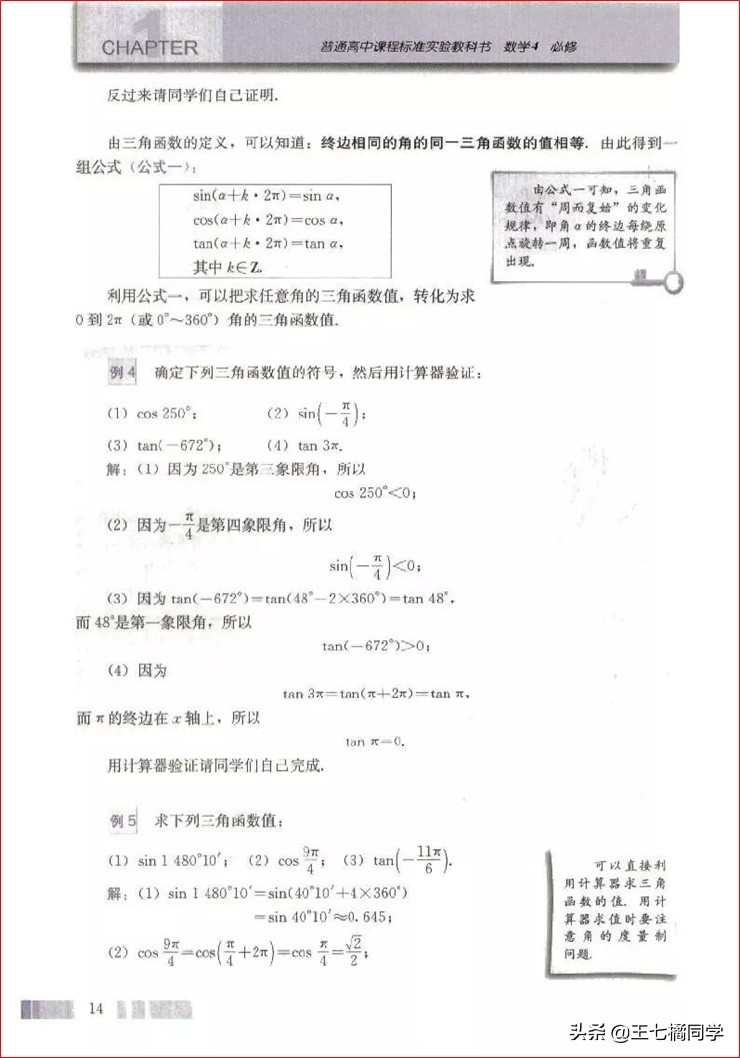 1
CHAPTER
普通高中课程标准实验教科书 数学4 必修
反过来请同学们自己证明.
由三角函数的定义，可以知道：终边相同的角的同一三角函数的值相等. 由此得到一
组公式（公式一）：
sin(α+k·2π)=sin α,
cos(α+k·2π)=cos α,
tan(α+k·2π)=tan α,
其中 k∈Z.
由公式一可知，三角函
数值有“周而复始”的变化
规律，即角α的终边每绕原
点旋转一周，函数值将重复
出现.
利用公式一，可以把求任意角的三角函数值，转化为求
0 到 2π（或 0°～360°）角的三角函数值.
例4 确定下列三角函数值的符号，然后用计算器验证：
(1) cos 250°； (2) sin(−π/4)；
(3) tan(−672°)； (4) tan 3π.
解：(1) 因为 250°是第三象限角，所以
cos 250°<0；
(2) 因为−π/4是第四象限角，所以
sin(−π/4)<0；
(3) 因为 tan(−672°)=tan(48°−2×360°)=tan 48°，
而 48°是第一象限角，所以
tan(−672°)>0；
(4) 因为
tan 3π=tan(π+2π)=tan π，
而 π 的终边在 x 轴上，所以
tan π=0.
用计算器验证请同学们自己完成.
例5 求下列三角函数值：
(1) sin 1 480°10′； (2) cos 9π/4； (3) tan(−11π/6).
解：(1) sin 1 480°10′=sin(40°10′+4×360°)
=sin 40°10′≈0.645；
(2) cos 9π/4=cos(π/4+2π)=cos π/4=√2/2；
可以直接利
用计算器求三角
函数的值. 用计
算器求值时要注
意角的度量制
问题.
14
头条 @王七橘同学